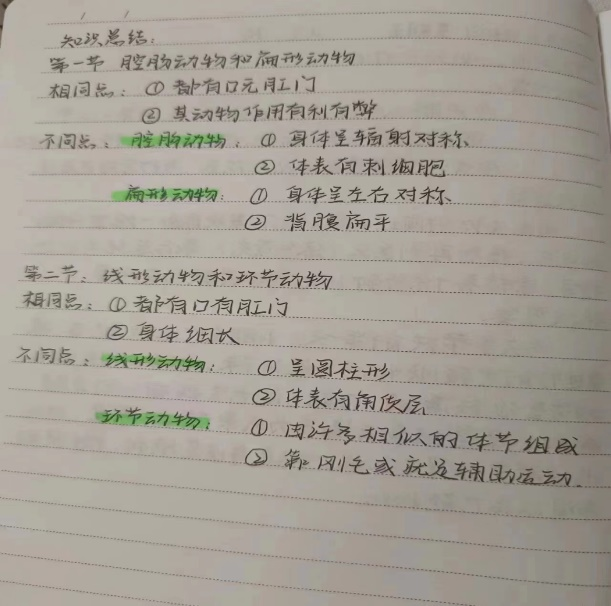 知识总结：
第一节 腔肠动物和扁形动物
相同点：① 都有口无肛门
② 其动物作用有利有弊
不同点：腔肠动物：① 身体呈辐射对称
② 体表有刺细胞
扁形动物：① 身体呈左右对称
② 背腹扁平
第二节：线形动物和环节动物
相同点：① 都有口有肛门
② 身体细长
不同点：线形动物：① 呈圆柱形
② 体表有角质层
环节动物：① 由许多相似的体节组成
② 靠刚毛或疣足辅助运动.